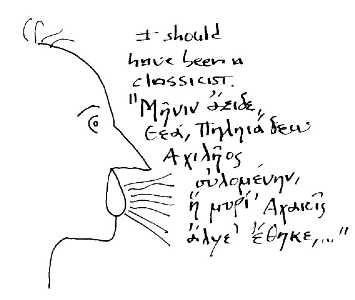 I should
have been a
classicist.
"Μῆνιν ἄειδε,
Θεά, Πηληϊάδεω
Αχιλῆος
οὐλομένην,
ἥ μυρί' Αχαιοῖς
ἄλγε' ἔθηκε,..."